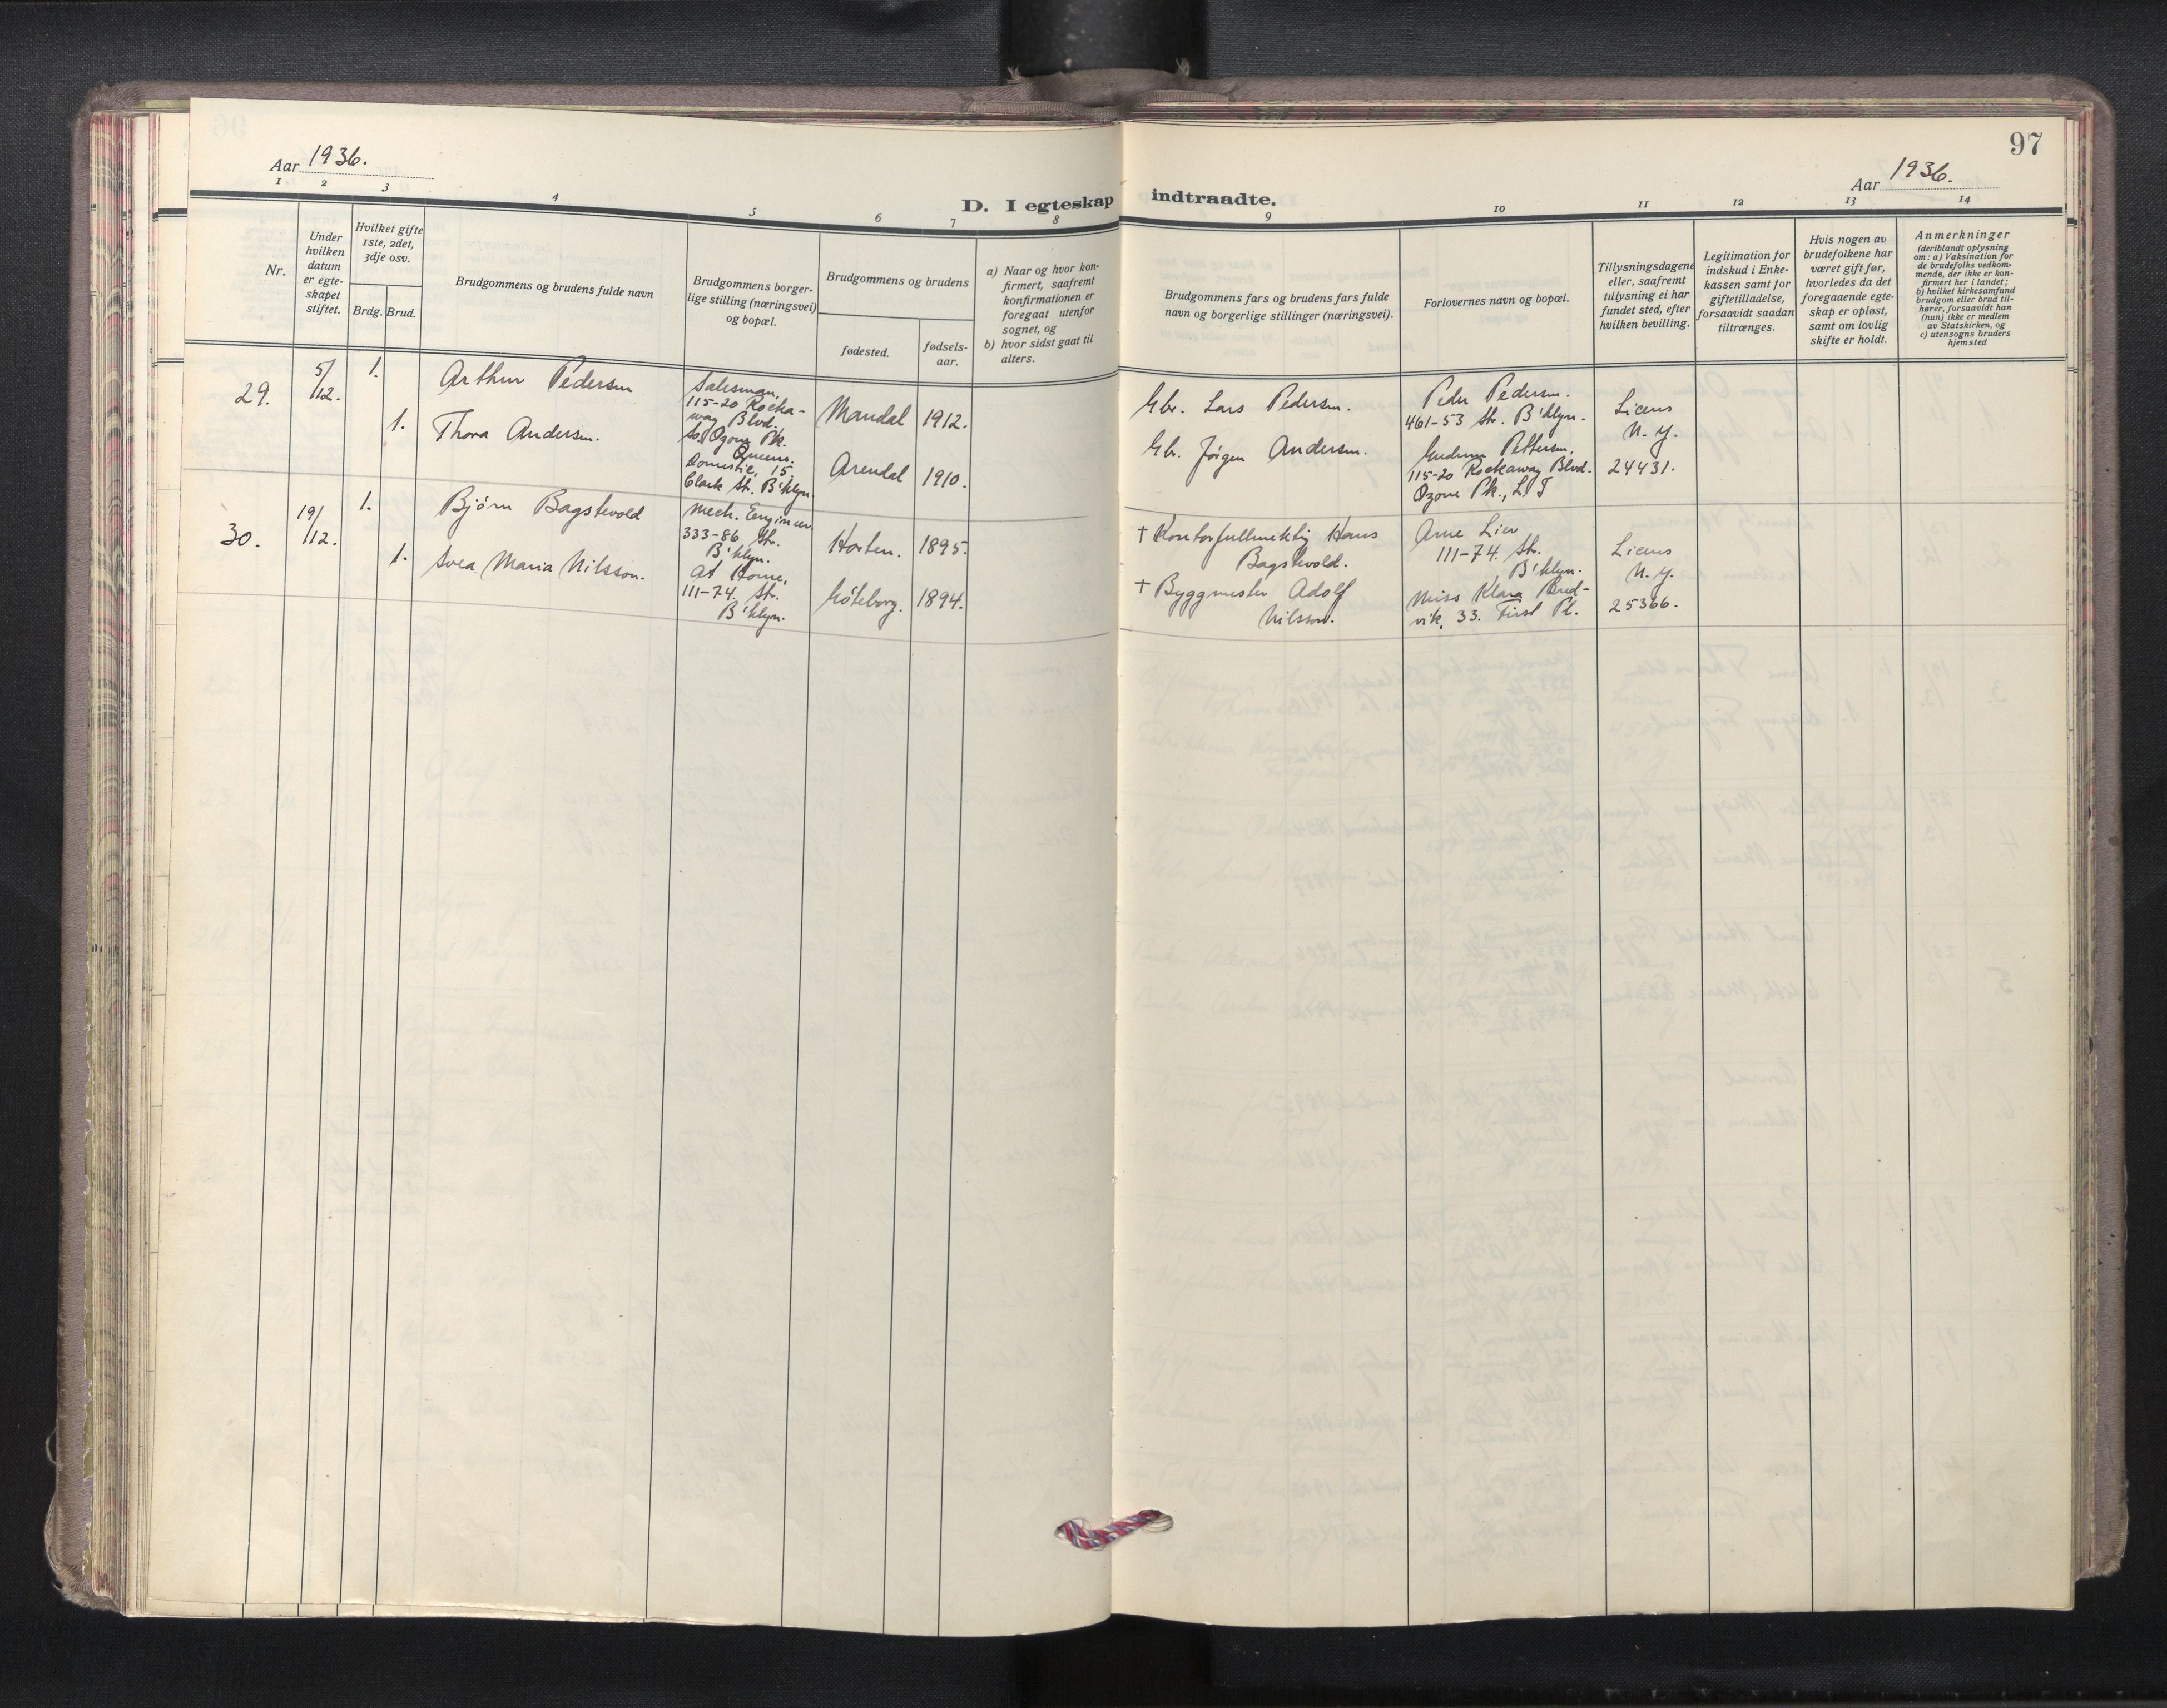 97
Aar 1936.
Aar 1936.
D. I egteskap indtraadte.
1 2 3 4 5 6 7 8 9 10 11 12 13 14
Nr.
Under
hvilken
datum
er egte-
skapet
stiftet.
Hvilket gifte
1ste, 2det,
3dje osv.
Brdg.
Brud.
Brudgommens og brudens fulde navn
Brudgommens borger-
lige stilling (næringsvei)
og bopæl.
Brudgommens og brudens
fødested.
fødsels-
aar.
a) Naar og hvor kon-
firmert, saafremt
konfirmationen er
foregaat utenfor
sognet, og
b) hvor sidst gaat til
alters.
Brudgommens fars og brudens fars fulde
navn og borgerlige stillinger (næringsvei).
Forlovernes navn og bopæl.
Tillysningsdagene
eller, saafremt
tillysning ei har
fundet sted, efter
hvilken bevilling.
Legitimation for
indskud i Enke-
kassen samt for
giftetilladelse,
forsaavidt saadan
tiltrænges.
Hvis nogen av
brudefolkene har
været gift før,
hvorledes da det
foregaaende egte-
skap er opløst,
samt om lovlig
skifte er holdt.
Anmerkninger
(deriblandt oplysning
om: a) Vaksination for
de brudefolks vedkom-
mende, der ikke er kon-
firmert her i landet;
b) hvilket kirkesamfund
brudgom eller brud til-
hører, forsaavidt han
(hun) ikke er medlem
av Statskirken, og
c) utensogns bruders
hjemsted
29.
5/12.
1.
Arthur Pedersen
Salesman,
115-20 Rocka-
way Blvd.
So. Ozone Pk.
Queens.
Mandal
1912.
Gbr. Lars Pedersen.
Peder Pedersen.
461-53 Str. B'klyn.
Licens
N. Y.
24431.
1.
Thora Andersen.
Domestic, 15
Clark St. B'klyn.
Arendal
1910.
Gbr. Jørgen Andersen.
Gudrun Pettersen,
115-20 Rockaway Blvd.
Ozone Pk., L I
30.
19/12.
1.
Bjørn Bagstevold
Mech. Eengineer
333-86 Str.
B'klyn.
Horten.
1895.
† Kontorfullmektig Hans
Bagstevold.
Arne Lier
111-74. Str.
B'klyn.
Licens
N. Y.
25366.
1.
Svea Maria Nilsson.
At Home,
111-74. Str.
B'klyn.
Göteborg.
1894.
† Byggmester Adolf
Nilsson.
Miss Klara Bred-
vik, 33. First Pl.